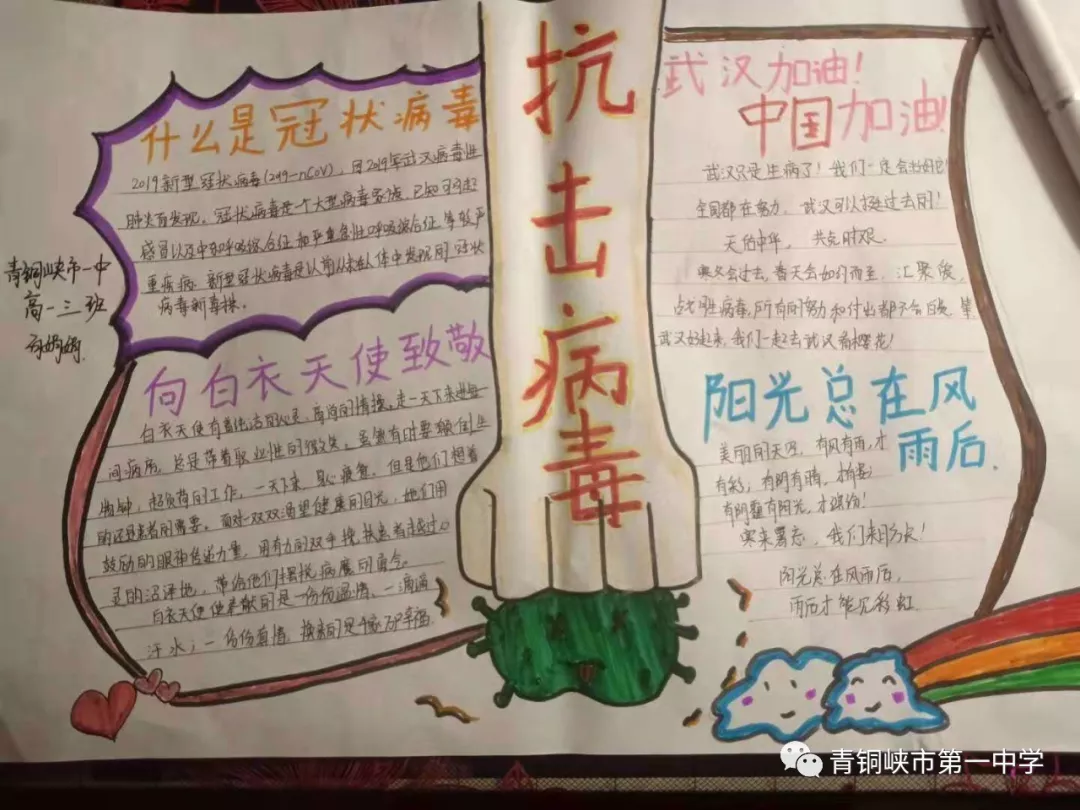 抗击病毒
什么是冠状病毒
2019新型冠状病毒(2019-nCoV),因2019年武汉病毒性
肺炎而发现,冠状病毒是一个大型病毒家族,已知可引起
感冒以及中东呼吸综合征和严重急性呼吸综合征等较严
重疾病.新型冠状病毒是以前从未在人体中发现的冠状
病毒新毒株。
青铜峡市一中
高一三班
向白衣天使致敬
白衣天使有着纯洁的心灵,高尚的情操.走一天下来进每
间病房,总是带着职业性的微笑。虽然有时要
超负荷的工作,一天下来,身心疲惫,但是他们想着
的还是患者的需要。面对一双双渴望健康的目光,她们用
鼓励的眼神传递力量,用有力的双手搀扶患者越过心
灵的沼泽地,带给他们摆脱病魔的勇气。
白衣天使使奉献的是一份份温情、一滴滴
汗水;一份份真情,换来的是千家万户幸福
武汉加油!
中国加油!
武汉只是生病了!我们一定会好好的!
全国都在努力,武汉可以挺过去的!
天佑中华,共克时艰.
寒冬会过去,春天会如约而至,汇聚爱,
战胜病毒,所有的努力和付出都不会白费.等
武汉好起来,我们一起去武汉看樱花!
阳光总在风
雨后.
美丽的天空,有风有雨,才
有彩;有阴有晴,才
有阴霾有阳光,才缤纷!
寒来暑去,我们来日方长!
阳光总在风雨后,
雨后才能见彩虹
青铜峡市第一中学